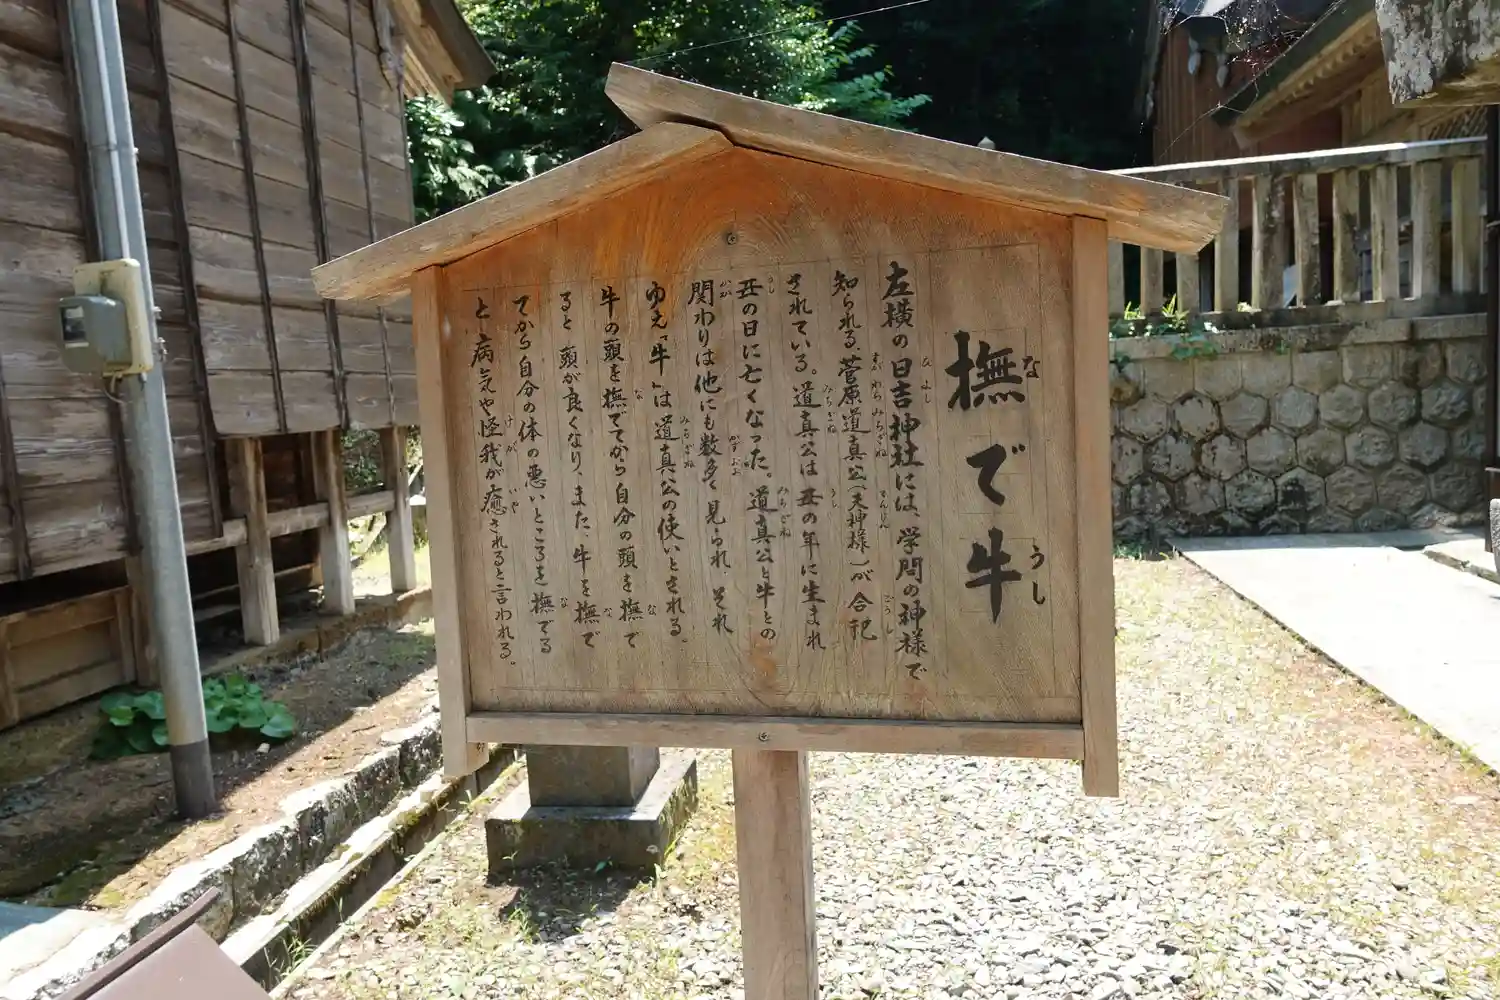 撫で牛
左横の日吉神社には、学問の神様で
知られる、菅原道真公(天神様)が合祀
されている。道真公は丑の年に生まれ
丑の日に亡くなった。道真公と牛との
関わりは他にも数多く見られ、それ
ゆえ「牛」は道真公の使いとされる。
牛の頭を撫でてから自分の頭を撫で
ると頭が良くなり、また、牛を撫で
てから自分の体の悪いところを撫でる
と、病気や怪我が癒されると言われる。